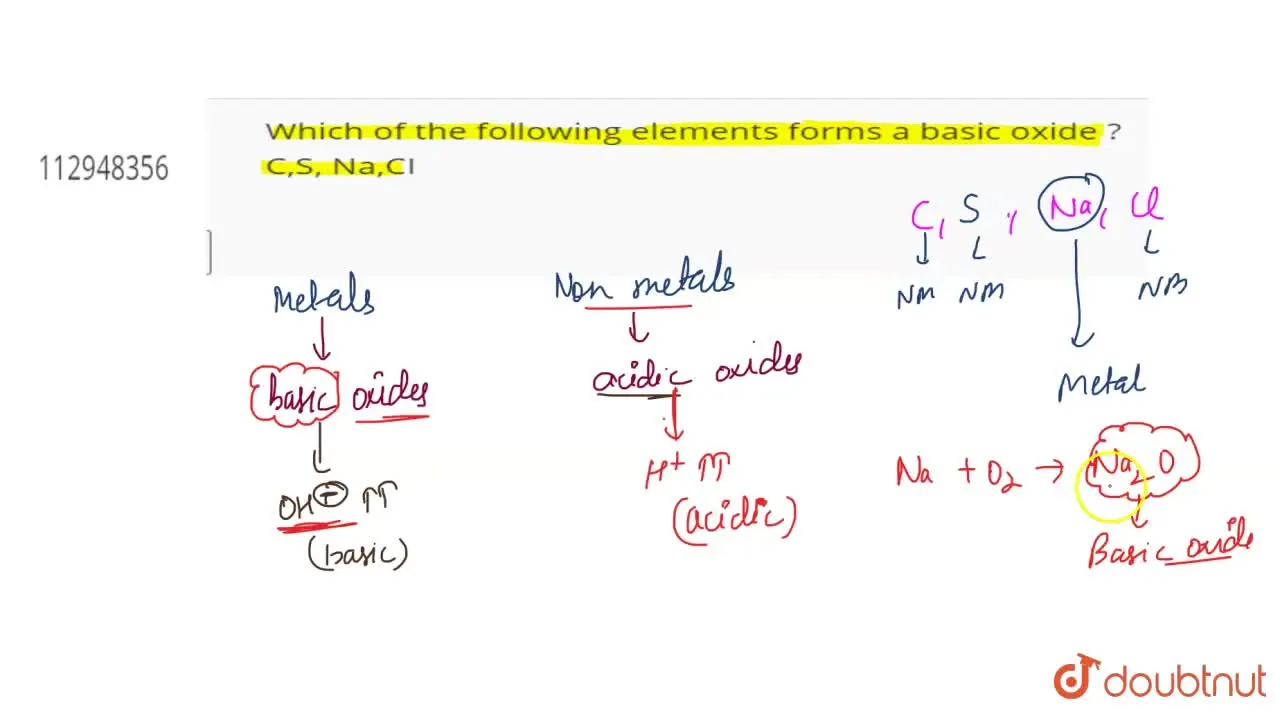 Which of the following elements forms a basic oxide ?
C,S, Na,CI
112948356
C, S, Na, Cl
NM NM NM
Metals
Non metals
Metal
basic oxides
acidic oxides
OH⊖ ↑↑
(basic)
H+ ↑↑
(acidic)
Na + O2 → Na2O
Basic oxide
doubtnut